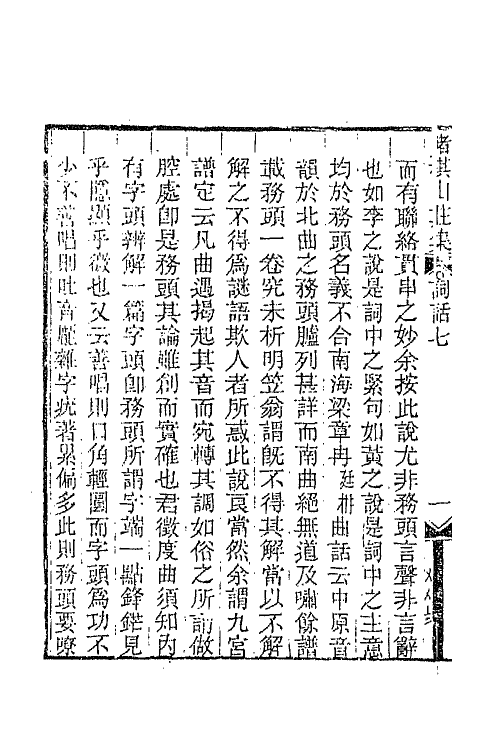 賭棋山莊集 詞話七
一
而有聯絡貫串之妙余按此說尤非務頭言聲非言辭
也如李之說是詞中之緊句如黃之說是詞中之主意
均於務頭名義不合南海梁章冉廷柟曲話云中原音
韻於北曲之務頭臚列甚詳而南曲絕無道及嘯餘譜
載務頭一卷究未析明笠翁謂旣不得其解當以不解
解之不得爲謎語欺人者所惑此說良當然余謂九宮
譜定云凡曲遇揭起其音而宛轉其調如俗之所謂做
腔處卽是務頭其論雖創而實確也君徵度曲須知內
有字頭辨解一篇字頭卽務頭所謂字端一點鋒鋩見
乎隱顯乎微也又云善唱則口角輕圓而字頭爲功不
少不善唱則吐音龐雜字疣著累偏多此則務頭要嘹